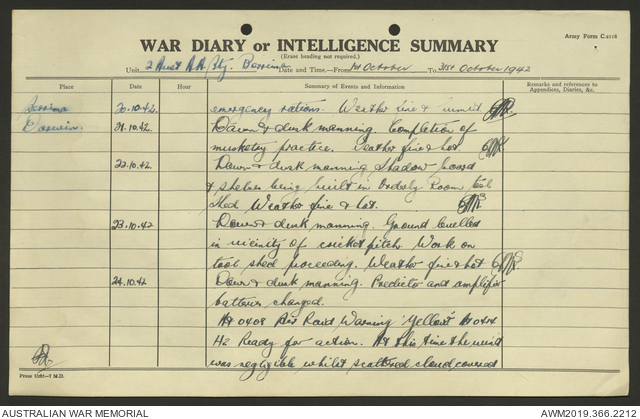 Army Form C.2118
WAR DIARY or INTELLIGENCE SUMMARY
(Erase heading not required.)
Unit 2 Aust A.A. Bty. Date and Time.—From 1st October To 31st October 1942
Place Date Hour Summary of Events and Information Remarks and references to Appendices, Diaries, &c.
20.10.42. emergency rations. Weather fine &
Darwin. 21.10.42. Dawn & dusk manning. Completion of
musketry practice. Weather fine & hot
22.10.42. Dawn & dusk manning Shadow board
& shelves being built in Orderly Room tool
shed. Weather fine & hot.
23.10.42 Dawn & dusk manning. Ground levelled
in vicinity of cricket pitch. Work on
tool shed proceeding. Weather fine & hot
24.10.42 Dawn & dusk manning. Predictor and amplifier
batteries charged.
At 0408 Air Raid Warning 'Yellow' At 0414
H2 Ready for action. At this time the wind
was negligible whilst scattered cloud covered
AUSTRALIAN WAR MEMORIAL AWM2019.366.2212